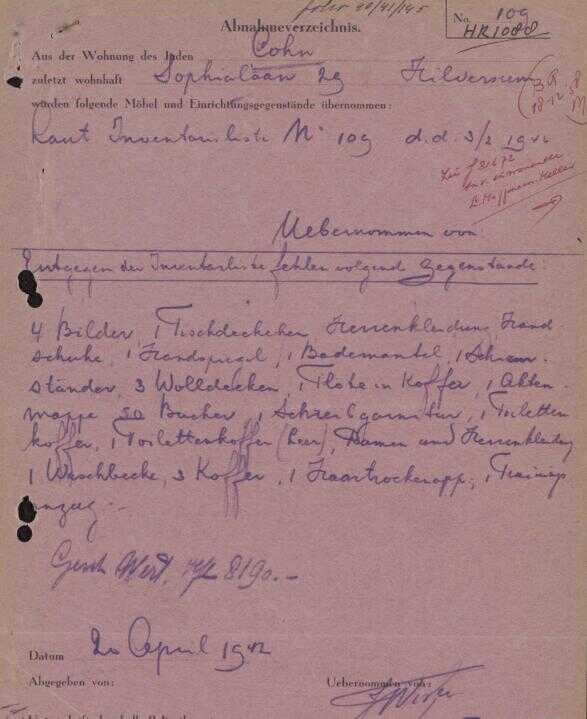 folio 40/41/145
Abnahmeverzeichnis.
No. 109
HR1088
Aus der Wohnung des Juden Cohn
zuletzt wohnhaft Sophialaan 29 Hilversum
wurden folgende Möbel und Einrichtungsgegenstände übernommen:
Laut Inventarliste No 109 d.d. 3/2 1942
Uebernommen von:
Entgegen der Inventarliste fehlen volgend Gegenstände
4 Bilder, 1 Tischdeckchen, Herrenkleidung, Hand
schuhe, 1 Handspiegel, 1 Bademantel, 1 Schirm
ständer, 3 Wolldecken, 1 in Koffer, 1 Akten
mappe 50 Bücher, 1 Schreibgarnitur, 1 Toiletten
koffer, 1 Toilettenkoffer (leer), Damen und Herrenkleidung
1 Waschbecke, 3 Koffer, 1 Haartrockenapp., 1 Trainings
anzug.-
Gesch Wert. Hfl 8190.-
Datum 20 April 1942
Abgegeben von:
Uebernommen von: